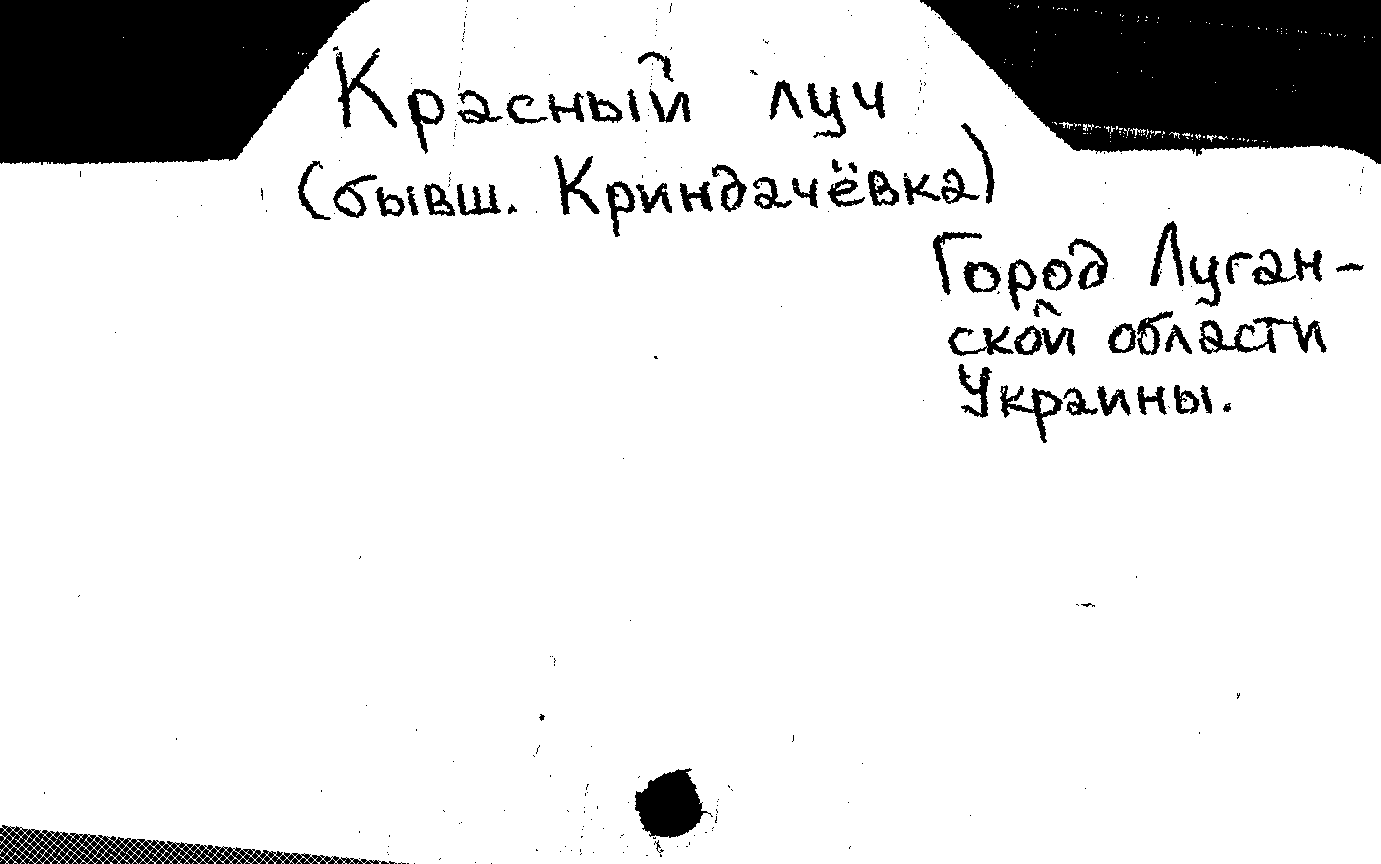 Красный луч
(бывш. Криндачёвка)
Город Луган-
ской области
Украины.